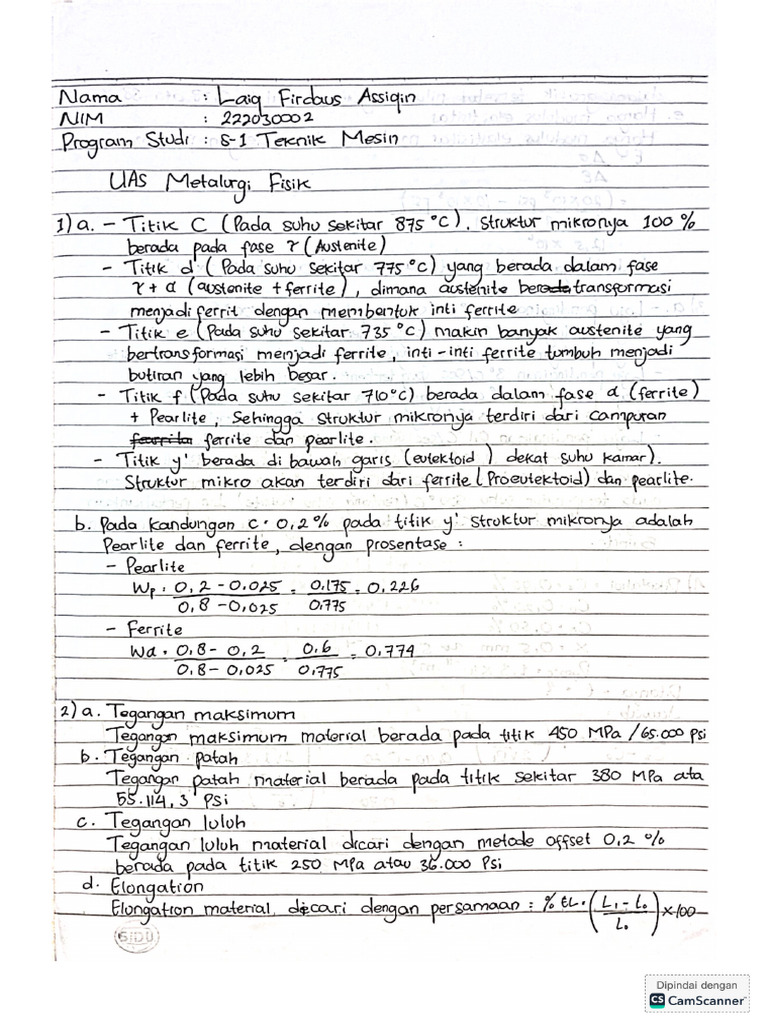 Nama : Laiq Firdaus Assiqin
NIM : 222030002
Program Studi : S-1 Teknik Mesin
UAS Metalurgi Fisik
1) a. - Titik C (Pada suhu sekitar 875 °C). Struktur mikronya 100 %
berada pada fase γ (Austenite)
- Titik d (Pada suhu sekitar 775 °C) yang berada dalam fase
γ + α (austenite + ferrite), dimana austenite berada transformasi
menjadi ferrit dengan membentuk inti ferrite
- Titik e (Pada suhu sekitar 735 °C) makin banyak austenite yang
bertransformasi menjadi ferrite, inti-inti ferrite tumbuh menjadi
butiran yang lebih besar.
- Titik f (Pada suhu sekitar 710 °C) berada dalam fase α (ferrite)
+ Pearlite, Sehingga struktur mikronya terdiri dari campuran
ferrite dan pearlite.
- Titik y' berada di bawah garis (eutektoid) dekat suhu kamar).
Struktur mikro akan terdiri dari ferrite (Proeutektoid) dan pearlite.
b. Pada kandungan C = 0,2 % pada titik y' struktur mikronya adalah
Pearlite dan ferrite, dengan prosentase :
- Pearlite
Wp = 0,2 - 0,025 / 0,8 - 0,025 = 0,175 / 0,775 = 0,226
- Ferrite
Wα = 0,8 - 0,2 / 0,8 - 0,025 = 0,6 / 0,775 = 0,774
2) a. Tegangan maksimum
Tegangan maksimum material berada pada titik 450 MPa / 65.000 psi
b. Tegangan patah
Tegangan patah material berada pada titik sekitar 380 MPa ata
55.114,3 Psi
c. Tegangan luluh
Tegangan luluh material dicari dengan metode offset 0,2 %
berada pada titik 250 MPa atau 36.000 Psi
d. Elongation
Elongation material dicari dengan persamaan : % EL = (L₁ - L₀ / L₀) x 100
SIDU
Dipindai dengan
CS CamScanner